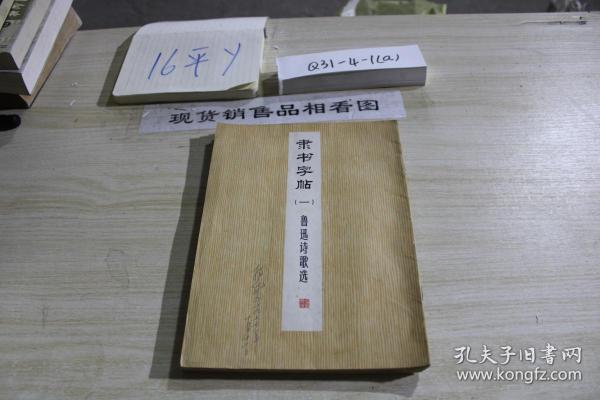 16平Y
Q31-4-1(a)
现货销售品相看图
隶书字帖
(一)
鲁迅诗歌选
孔夫子旧书网
www.kongfz.com